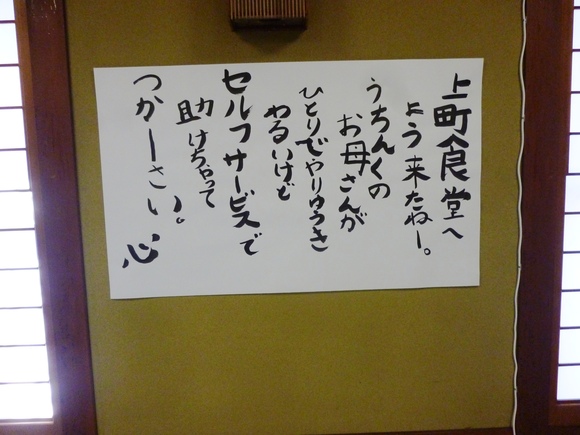 上町食堂へ
よう来たねー。
うちんくの
お母さんが
ひとりでやりゆうき
わるいけど
セルフサービスで
助けちゃって
つかーさい。
心